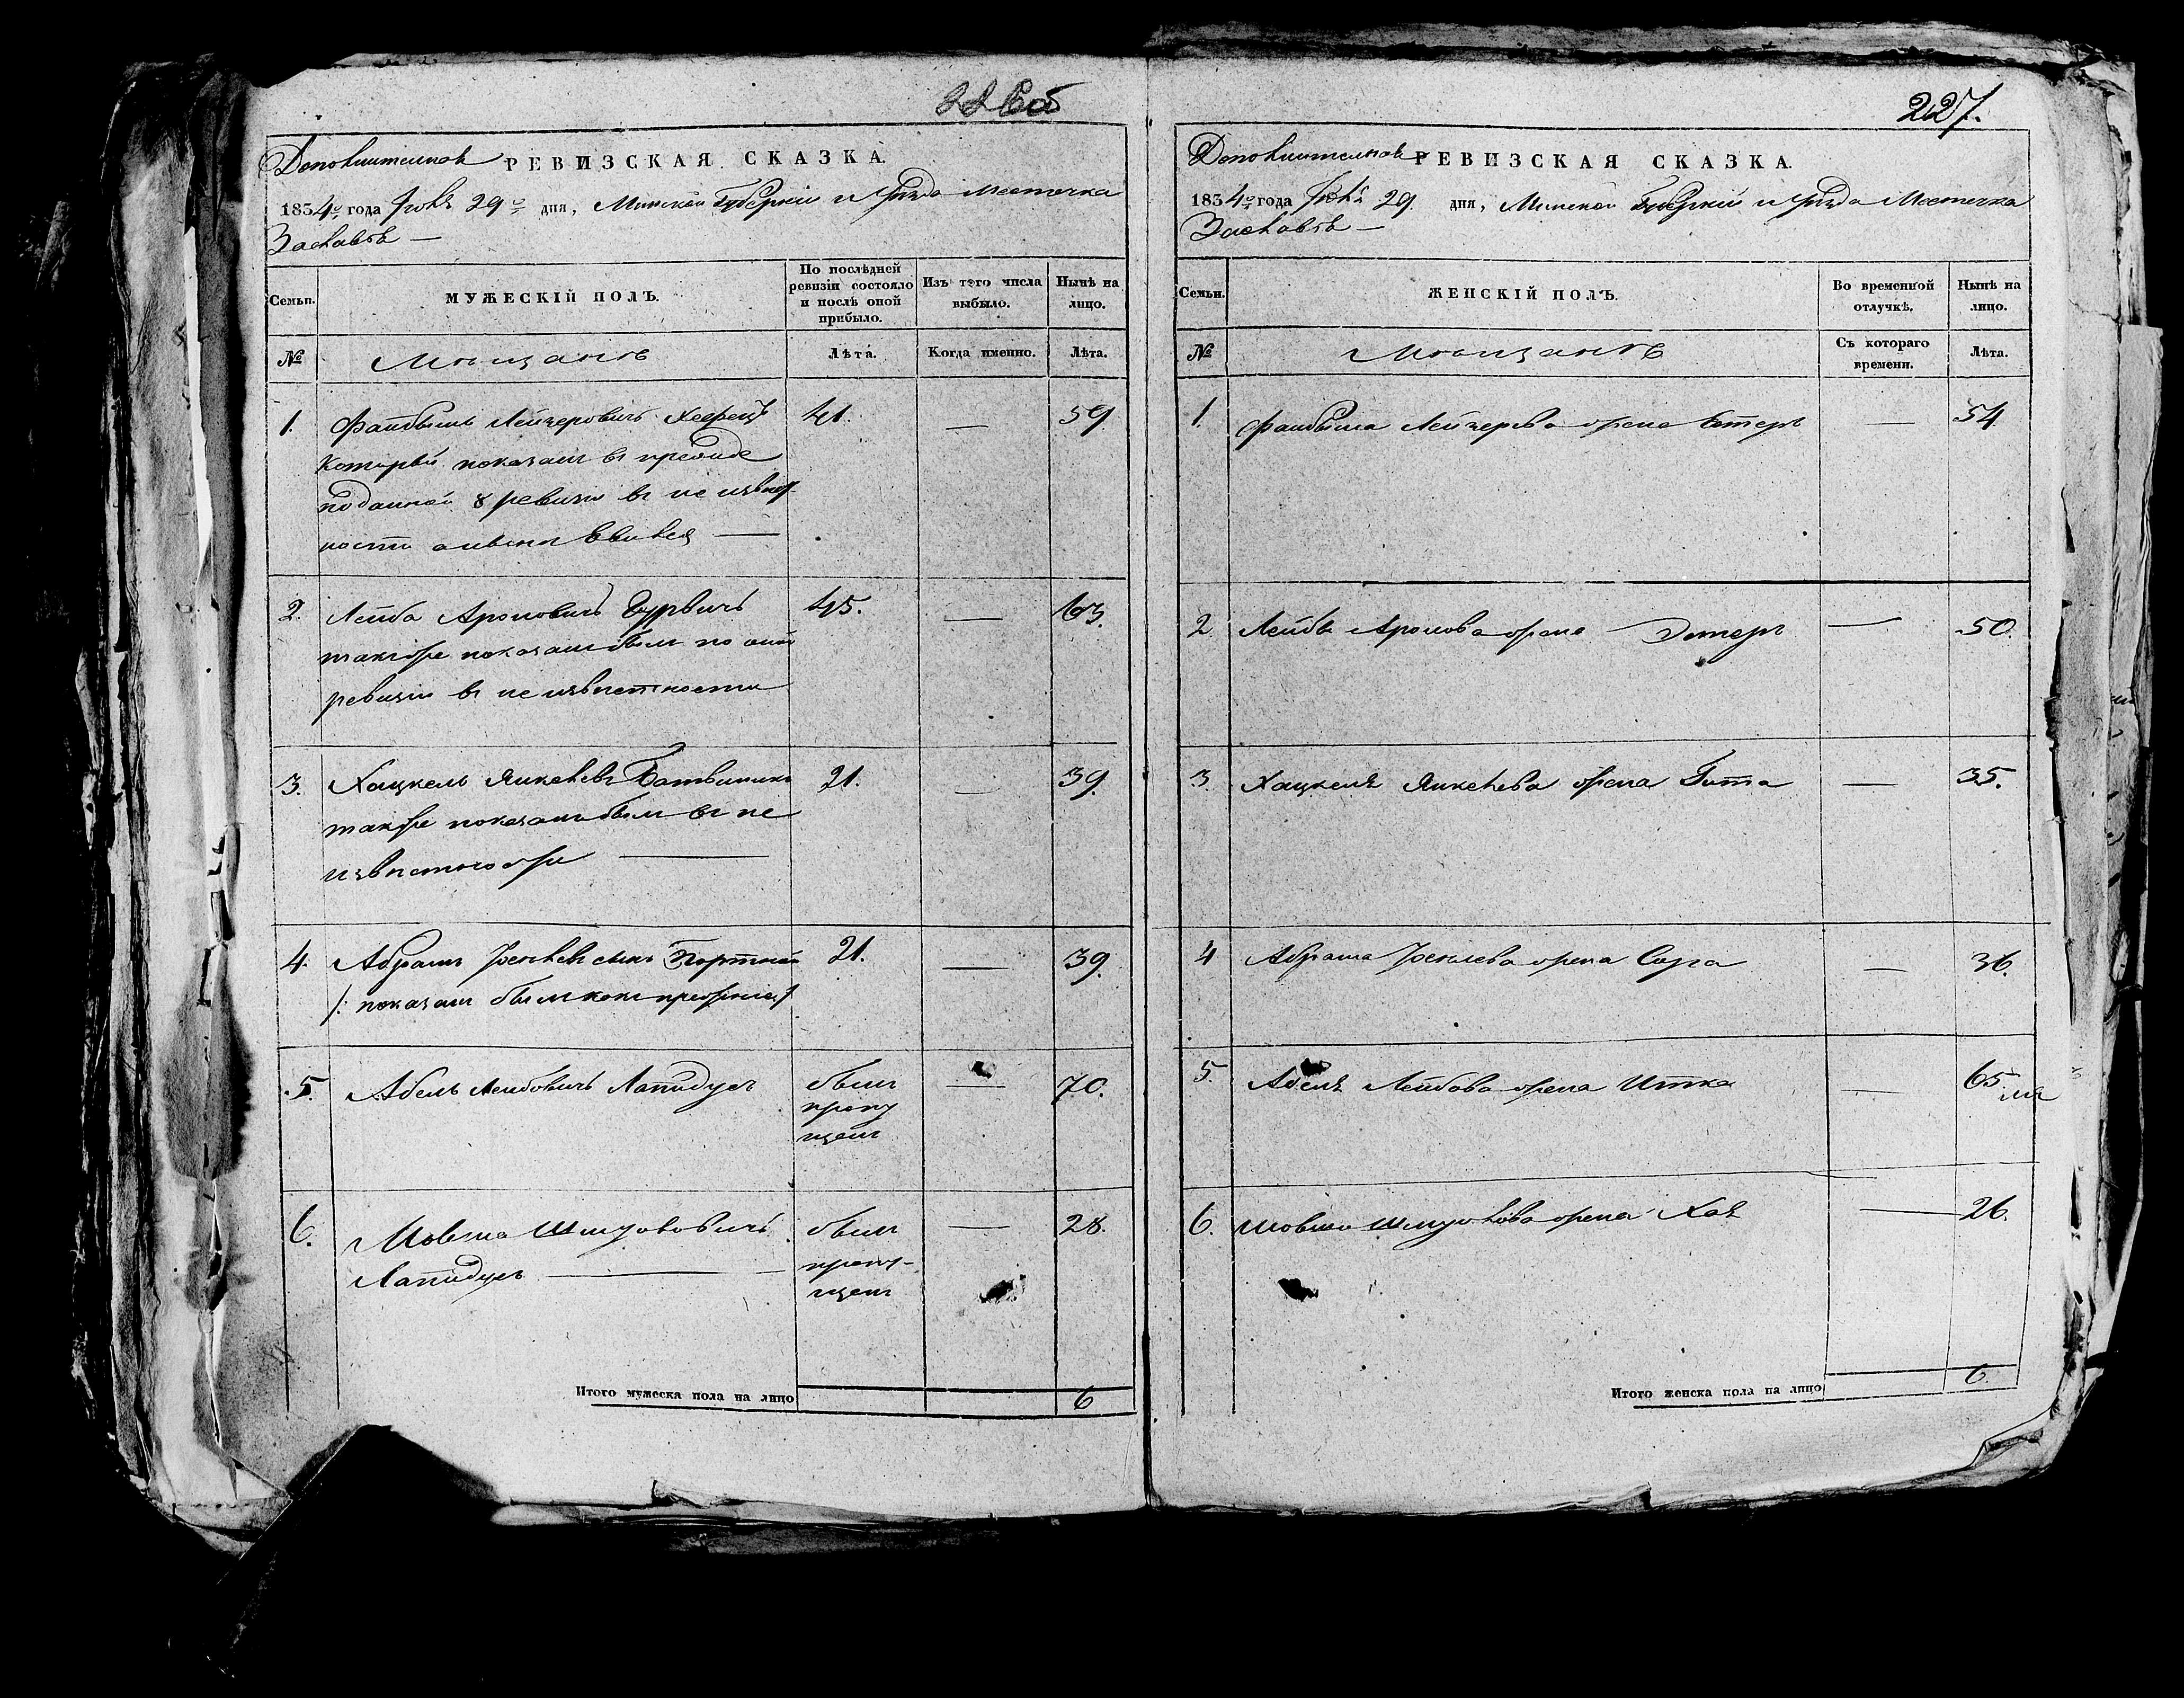 Дополнительная РЕВИЗСКАЯ СКАЗКА.
1834го года Июля 29го дня, Минской Губерніи и уѣзда Мѣстечка
Заславля —
Семьи. МУЖЕСКІЙ ПОЛЪ. По послѣдней ревизіи состояло и послѣ оной прибыло. Изъ того числа выбыло. Нынѣ на лицо.
№ Мѣщанъ Лѣта. Когда именно. Лѣта.
1. Файбышъ Лейзеровичъ 41. — 59
который показанъ въ
поданной 8 ревизіи въ не извѣст
ности —
2. Лейба Ароновичъ Гурвичъ 45. — 63.
также показанъ былъ по
ревизіи въ не извѣстности
3. Хацкель Янкелевъ Ботвинникъ 21. — 39.
также показанъ былъ въ не
извѣстности —
4. Абрамъ сынъ Портной 21. — 39.
/: показанъ былъ какъ
5. Абель Лейбовичъ Лапидусъ былъ — 70.
пропу
щенъ
6. Мовша Шмуйловичъ былъ — 28.
Лапидусъ — пропу-
щенъ
Итого мужеска пола на лицо 6
227.
Дополнительная РЕВИЗСКАЯ СКАЗКА.
1834го года Июля 29. дня, Минской Губерніи и уѣзда Мѣстечка
Заславля —
Семьи. ЖЕНСКІЙ ПОЛЪ. Во временной отлучкѣ. Нынѣ на лицо.
№ Мѣщанъ Съ котораго времени. Лѣта.
1. Файбыша Лейзерова жена Эстеръ — 54
2. Лейбы Аронова жена Эстеръ — 50.
3. Хацкеля Янкелева жена Гита — 35.
4 Абрама жена Сора — 36.
5. Абеля Лейбова жена Итка — 65.
6. Мовши Шмуйлова жена Хая — 26.
Итого женска пола на лицо 6